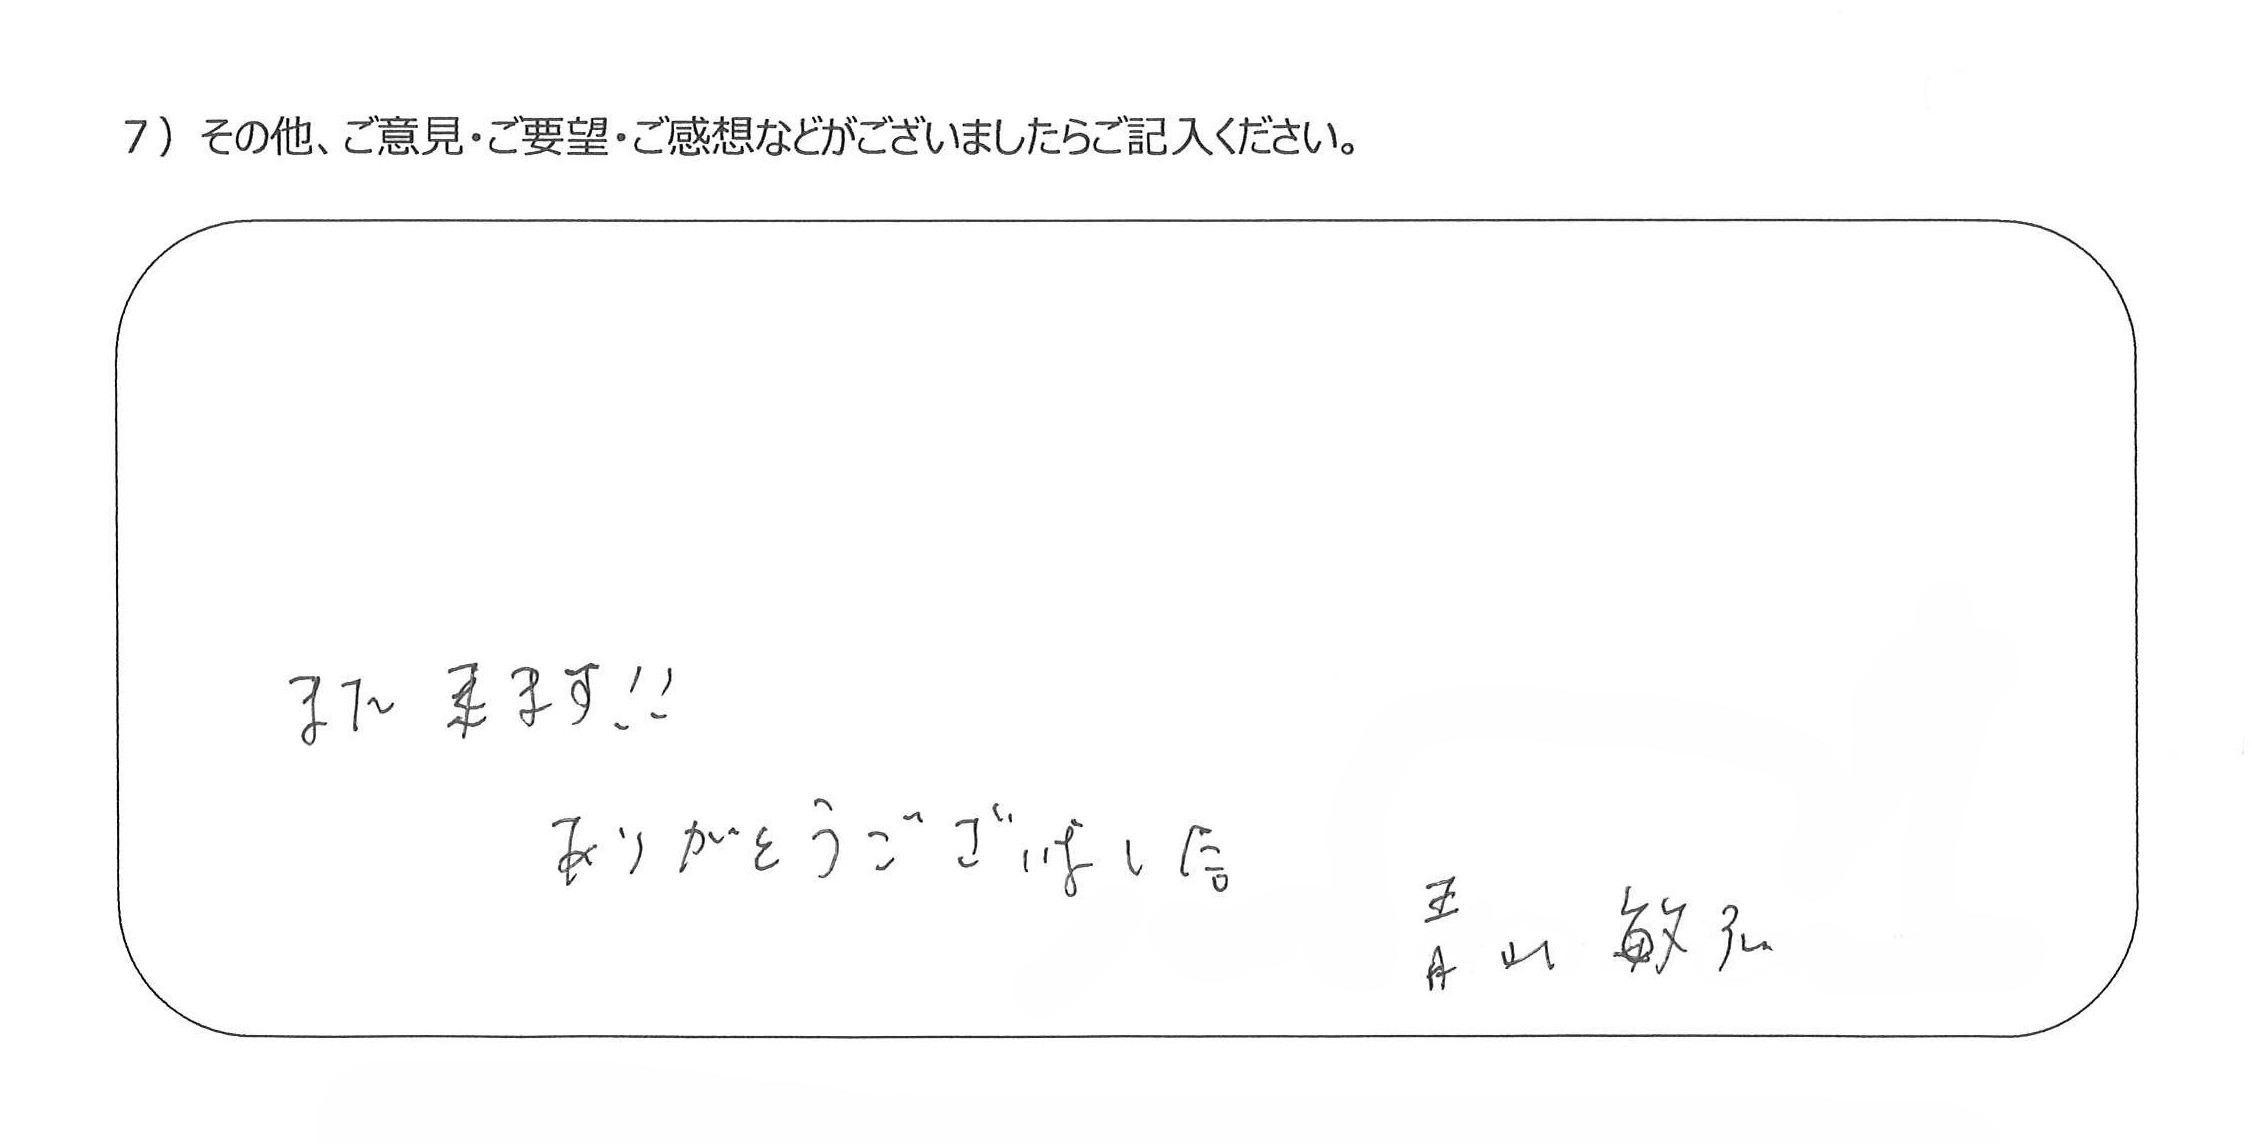 7）その他、ご意見・ご要望・ご感想などがございましたらご記入ください。
また来ます!!
ありがとうございました
青山 敏弘